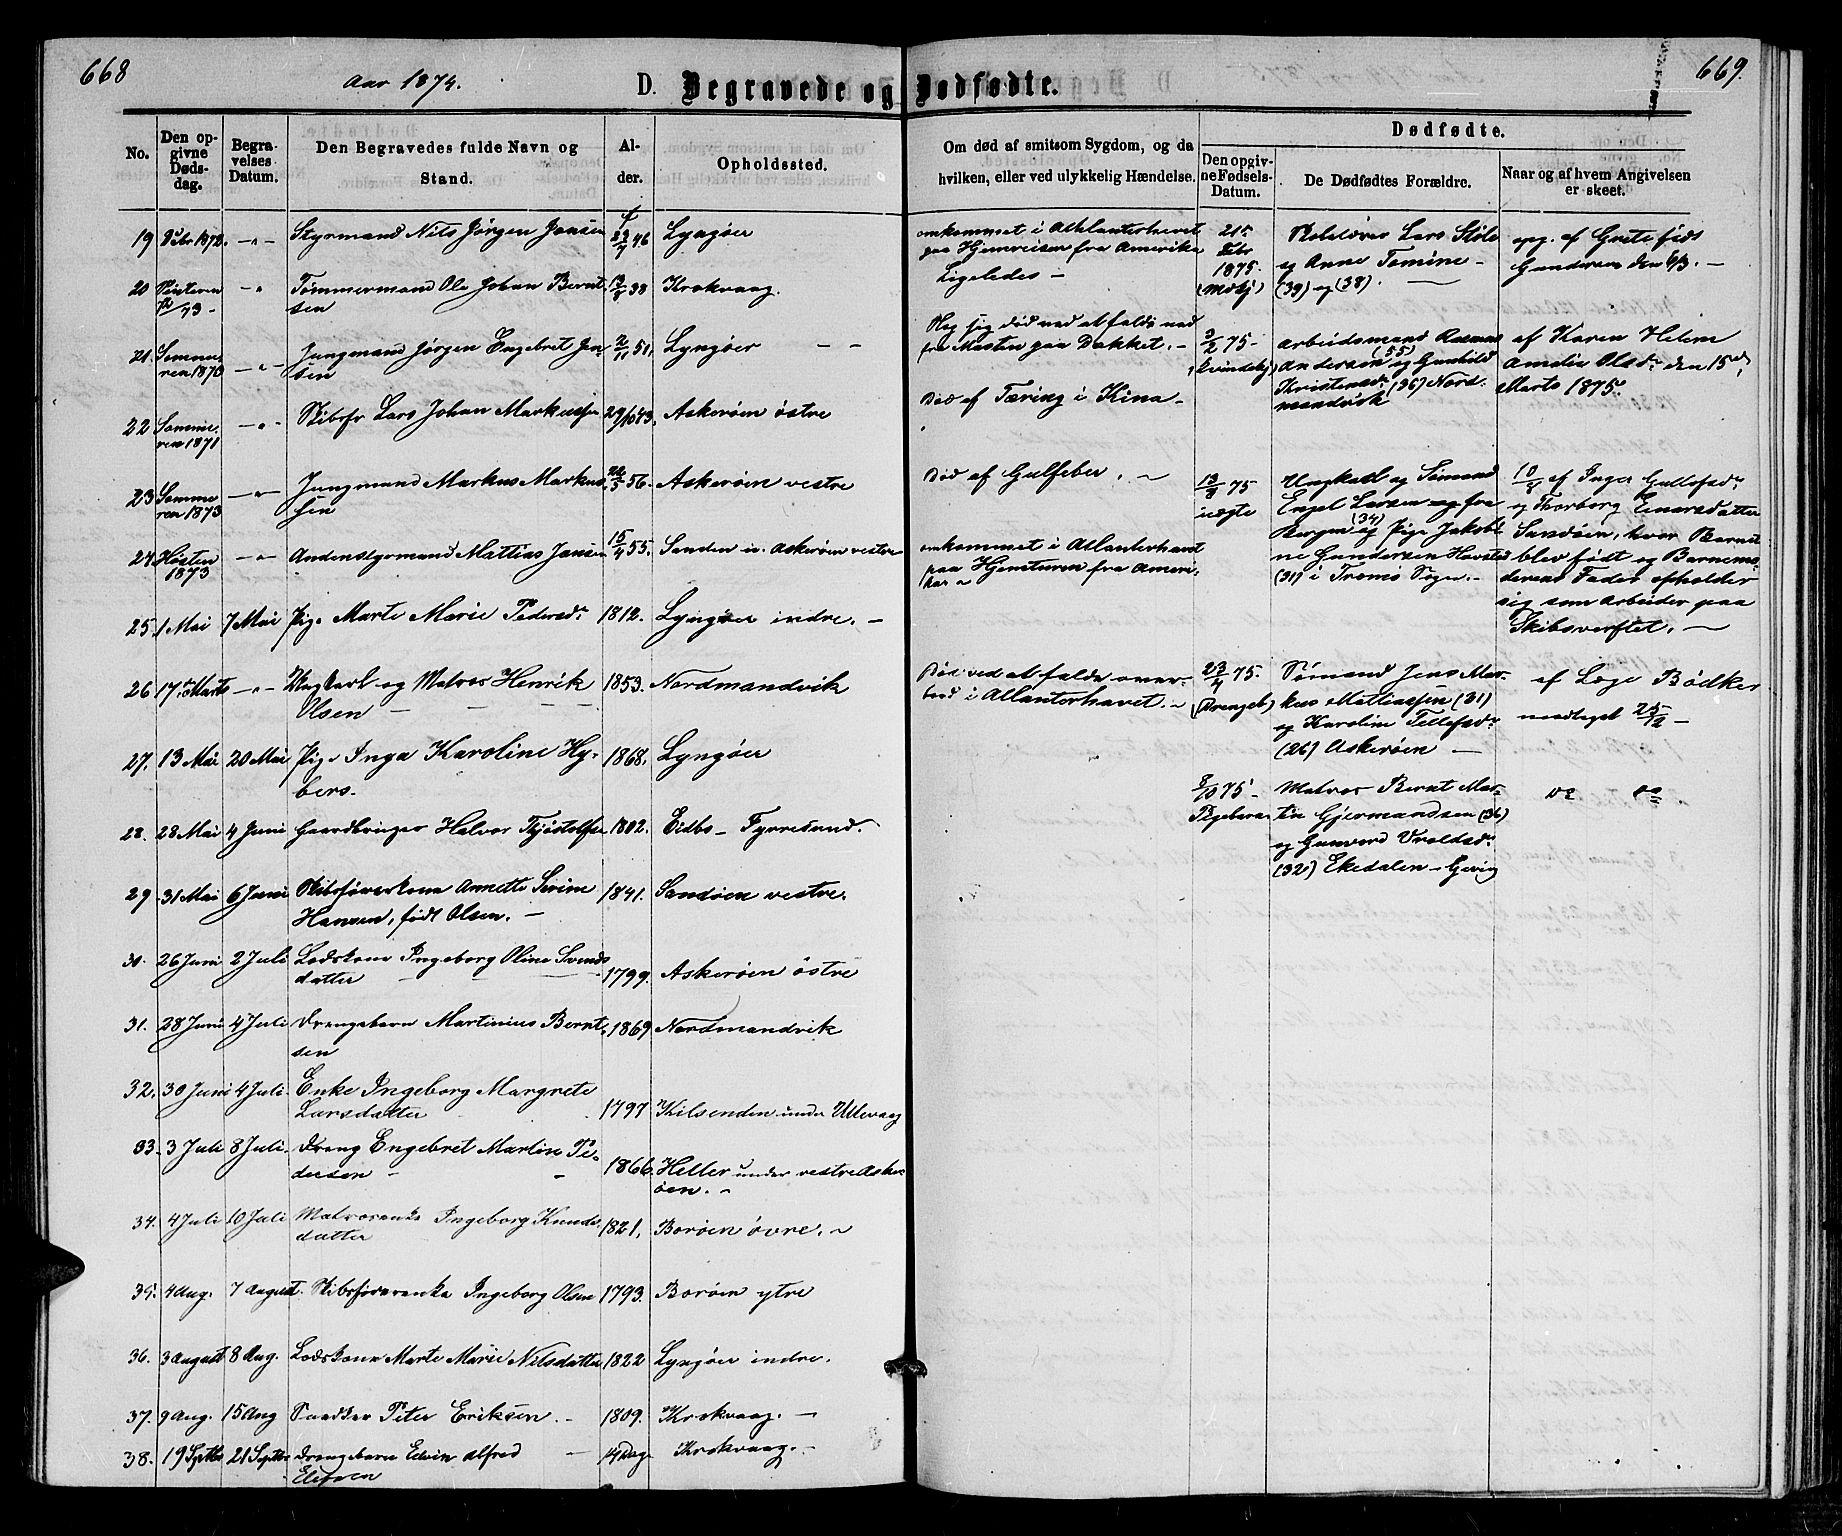 668
Aar 1874.
D. Begravede og Dødfødte.
669.
No.
Den op-
givne
Døds-
dag.
Begra-
velses
Datum.
Den Begravedes fulde Navn og
Stand.
Al-
der.
Opholdssted.
Om død af smitsom Sygdom, og da
hvilken, eller ved ulykkelig Hændelse.
Dødfødte.
Den opgiv-
ne Fødsels-
Datum.
De Dødfødtes Forældre.
Naar og af hvem Angivelsen
er skeet.
19 Dcbr 1872. —"— Styrmand Nils Jørgen Jensen 46 Lyngøer
omkommet i Athlanterhavet
paa Hjemreisen fra Amerika
20 Vinteren /73 — " Tømmermand Ole Johan Bernt-
sen 38 Krokvaag.
Ligeledes —
21. Somme-
ren 1870 —"— Jungmand Jørgen Engebret Jen-
sen 2/11 51. Lyngøer — —
Slog sig død ved at falde ned
fra Masten paa Dækket. —
22 Somme-
ren 1871 —"— Skibsfr Lars Johan Markussen 29/10 43. Askerøen östre
Död af Tæring i Kina —
23 Somme
ren 1873 —"— Jungmand Markus Markus-
sen 22/5 56. Askerøen vestre
Död af Gulfeber. —
24 Høsten
1873 —"— Andenstyrmand Mattias Jansen 15/4 55. Sanden u. Askerøen vestre
omkommet i Atlanterhavet
paa Hjemturen fra Ameri-
ka —
25. 1 Mai 7 Mai Pige Marte Marie Pedersdr 1812. Lyngøer indre. —
26 17. Marts —"— Ungkarl og Matros Henrik
Olsen — — 1853. Nordmandvik
Död ved at falde over-
bord i Atlanterhavet. —
27. 13 Mai 20 Mai Pige Inga Karoline Hy-
bers. 1868. Lyngøer
28. 28 Mai 4 Juni Gaardbruger Halvor Tjöstolfsen 1802. Eidbo — Fyrresund.
29. 31 Mai 6 Juni Skibsförerkone Annette Serine
Hansen, född Olsen. — 1841. Sandøen vestre.
30. 26 Juni 2 Juli Lodskone Ingeborg Oline Svends
datter — — 1799. Askerøen östre
31. 28 Juni 4 Juli Drengebarn Martinius Bernt-
sen 1869 Nordmandvik
32. 30 Juni 4 Juli. Enke Ingeborg Margrete
Larsdatter 1797 Kilsenden under Utevaag
33. 3 Juli 8 Juli. Dreng Engebret Martin Pe-
dersen — 1866. Heller under vestre Aske
røen. —
34. 4 Juli 10 Juli Matrosenke Ingeborg Knuds-
datter 1821. Borøen øvre. —
35. 4 Aug. 7 August. Skibsförerenke Ingeborg Olsen 1793. Borøen ytre
36. 3 August 8 Aug. Lodskone Marte Marie Nilsdatter 1822 Lyngøer indre.
37. 9 Aug. 15 Aug Peter Eriksen. — 1809. Krokvaag. —
38. 19 Septbr 21 Septbr Drengebarn Edvin Alfred —
Elefsen 14 Dage Krokvaag. —
21de
Febr
1875.
Lars Stöle
og Anne Tomine —
(39) og (38). —
opg. af Grete født
Gundersen den 6/3. —
3/2 75 —
Arbeidsmand Rasmus
Andersen (55) og Gunhild
Kristensdr (36) Nord-
mandvik
af Karen Helene
Amalie Olsdr. den 15de
Marts 1875.
13/3 75
uægte
Ungkarl og Sömand
Engel Larsen fra
Bergen (34) og Pige Jakobi-
ne Gundersen Havsted
(31) i Tromö Sogn. —
10/8 af Inger Gullofsdr
og Thorborg Einarsdatter
Sandöen, hvor Barnet
blev födt og Barnemo-
derens Fader opholder
sig som Arbeider paa
Skibsverftet. —
23/4 75.
(Drengeb)
Sömand Jens Mar-
kus Mattiassen (31)
og Karoline Tellefsdr
(26) Askerøen —
af Læge Bödker
modtaget 25/12 —
8/10 75 —
Pigebarn
Matros Bernt Mar-
tin Gjermundsen (36)
og Gunvord Vroldsdr
(32) Ekedalen — Geving
do do